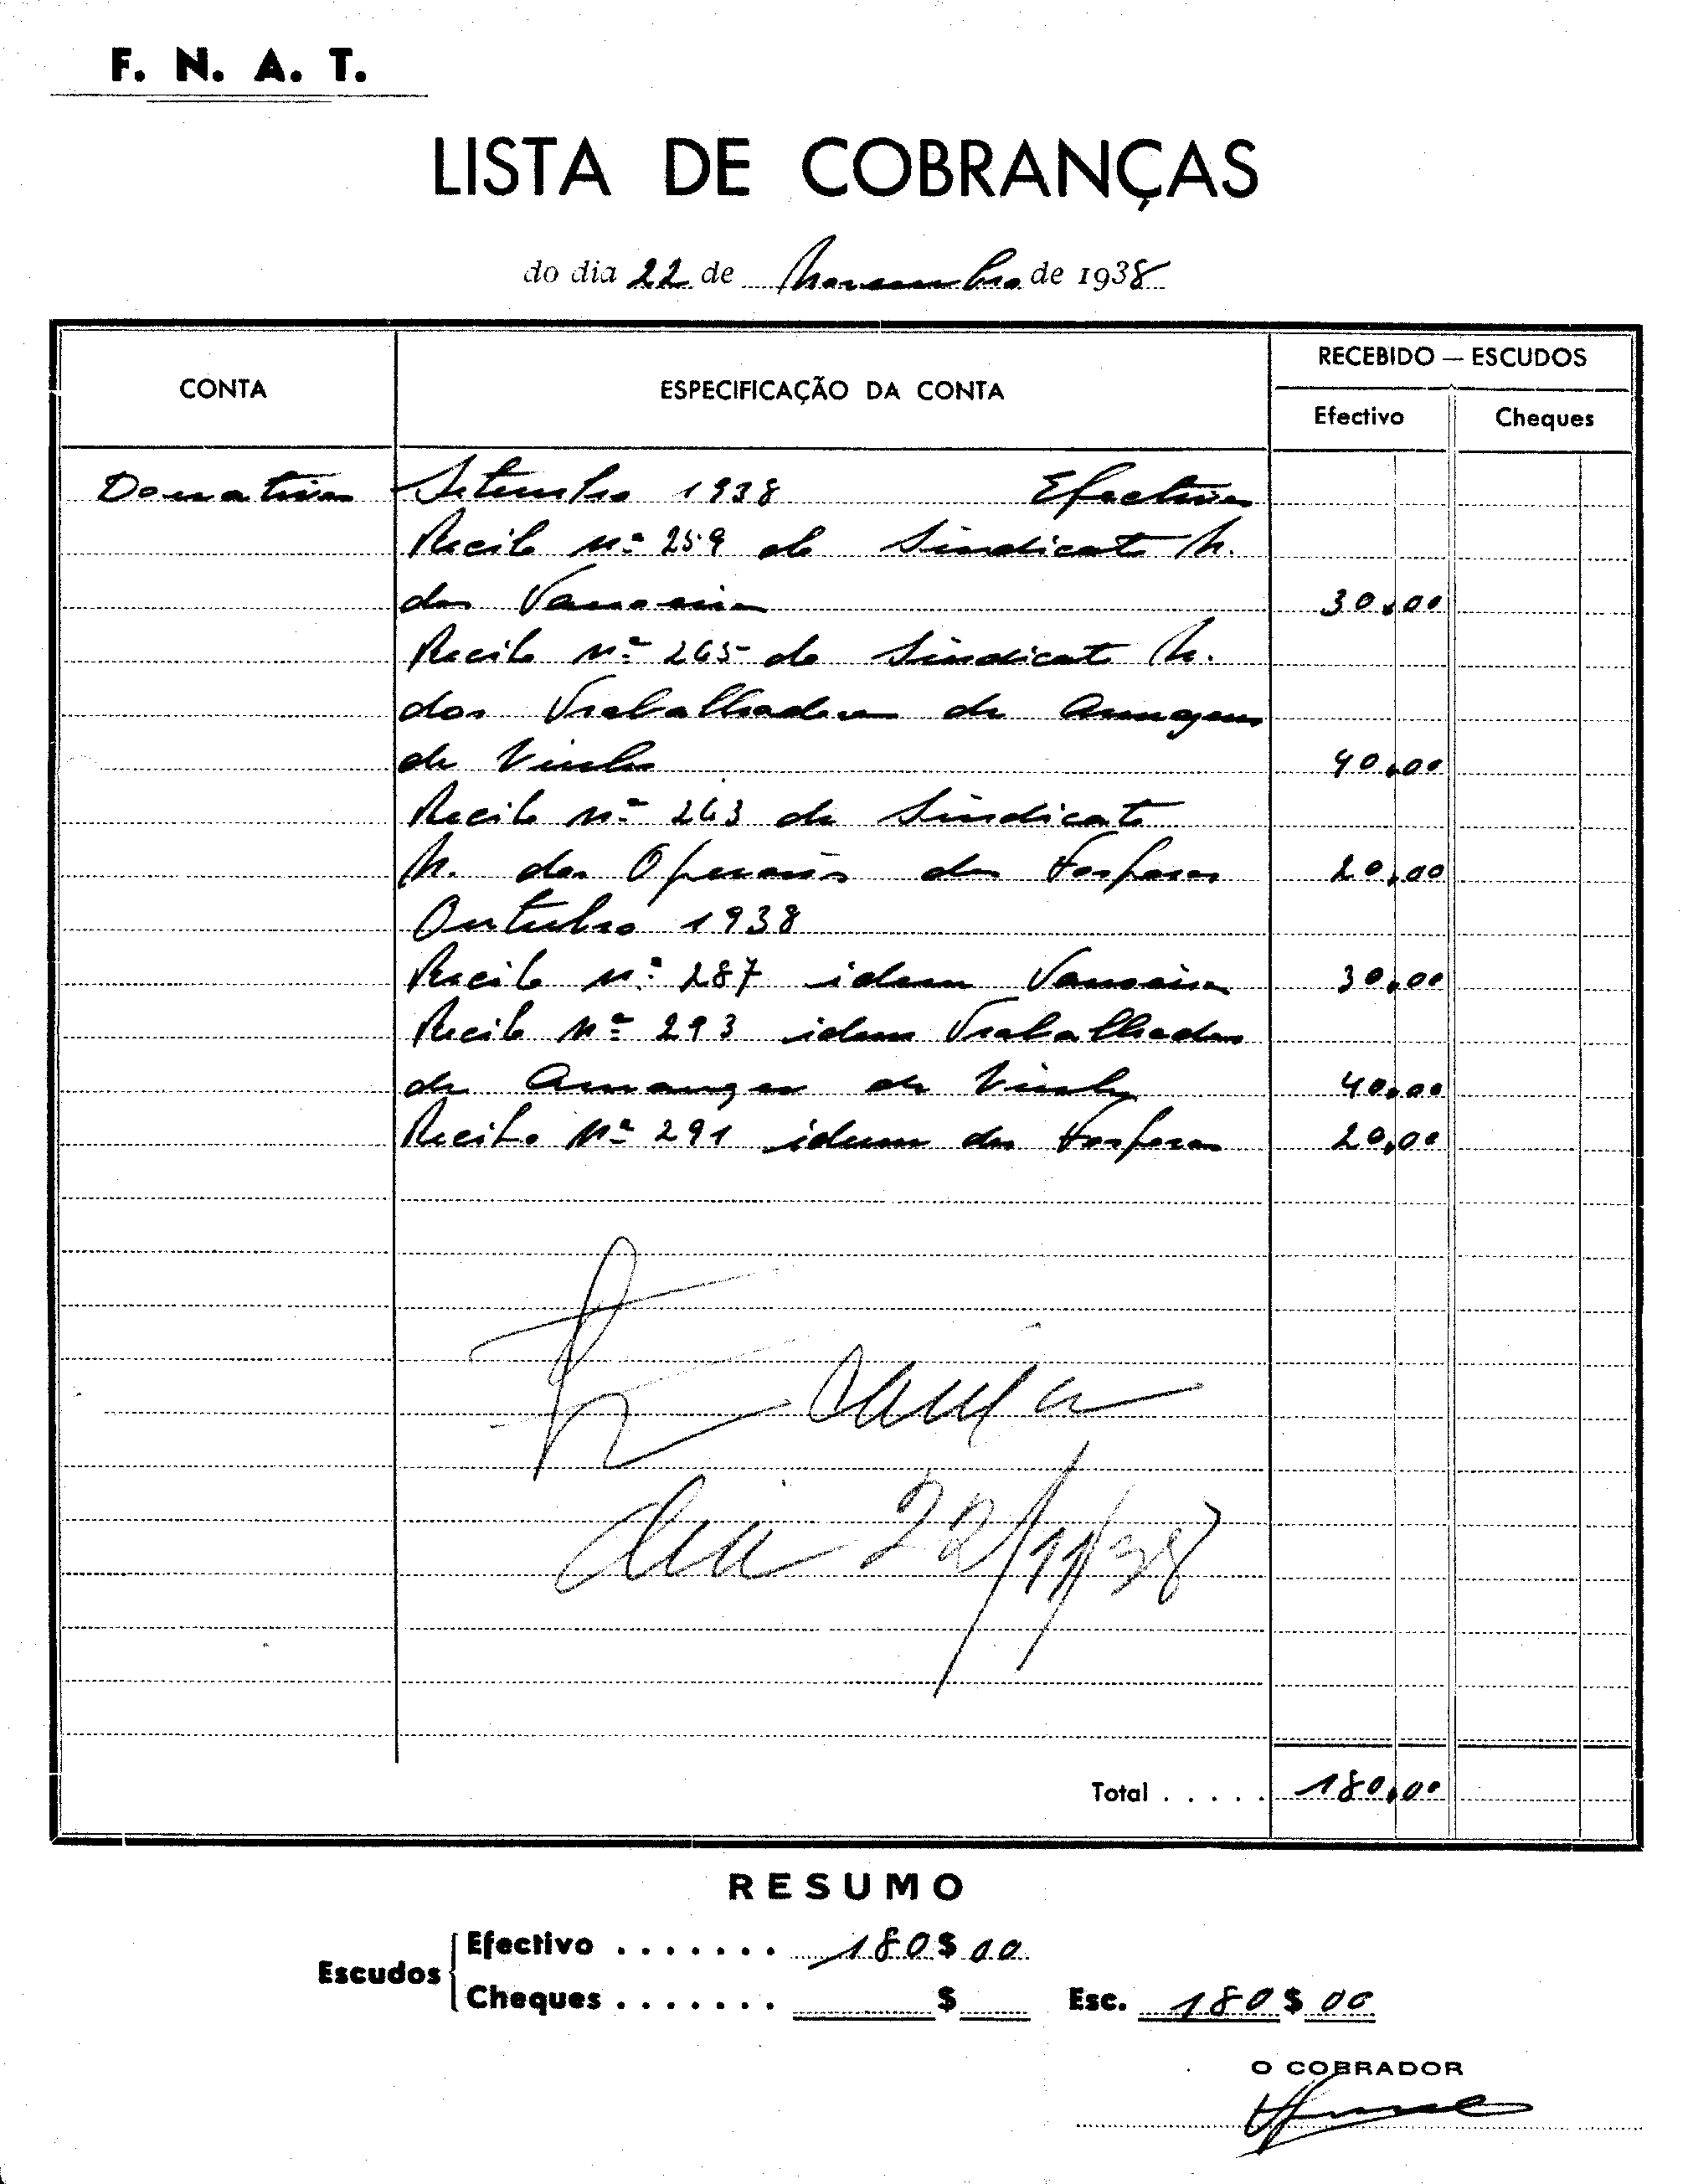 F. N. A. T.
LISTA DE COBRANÇAS
do dia 22 de Novembro de 1938
CONTA
ESPECIFICAÇÃO DA CONTA
RECEBIDO — ESCUDOS
Efectivo
Cheques
Donativos Setembro 1938 Efectivos
Recibo nº 259 do Sindicato N.
dos 30,00
Recibo nº 265 do Sindicato N.
dos Trabalhadores de Armazens
de Vinho 40,00
Recibo nº 263 do Sindicato
N. dos Operarios dos Fosforos 20,00
Outubro 1938
Recibo nº 287 idem 30,00
Recibo nº 293 idem Trabalhadores
de Armazens de Vinho 40,00
Recibo nº 291 idem dos Fosforos 20,00
dia 22/11/38
Total . . . . . 180,00
RESUMO
Escudos
Efectivo . . . . . . . 180$00
Cheques . . . . . . . $ Esc. 180$00
O COBRADOR